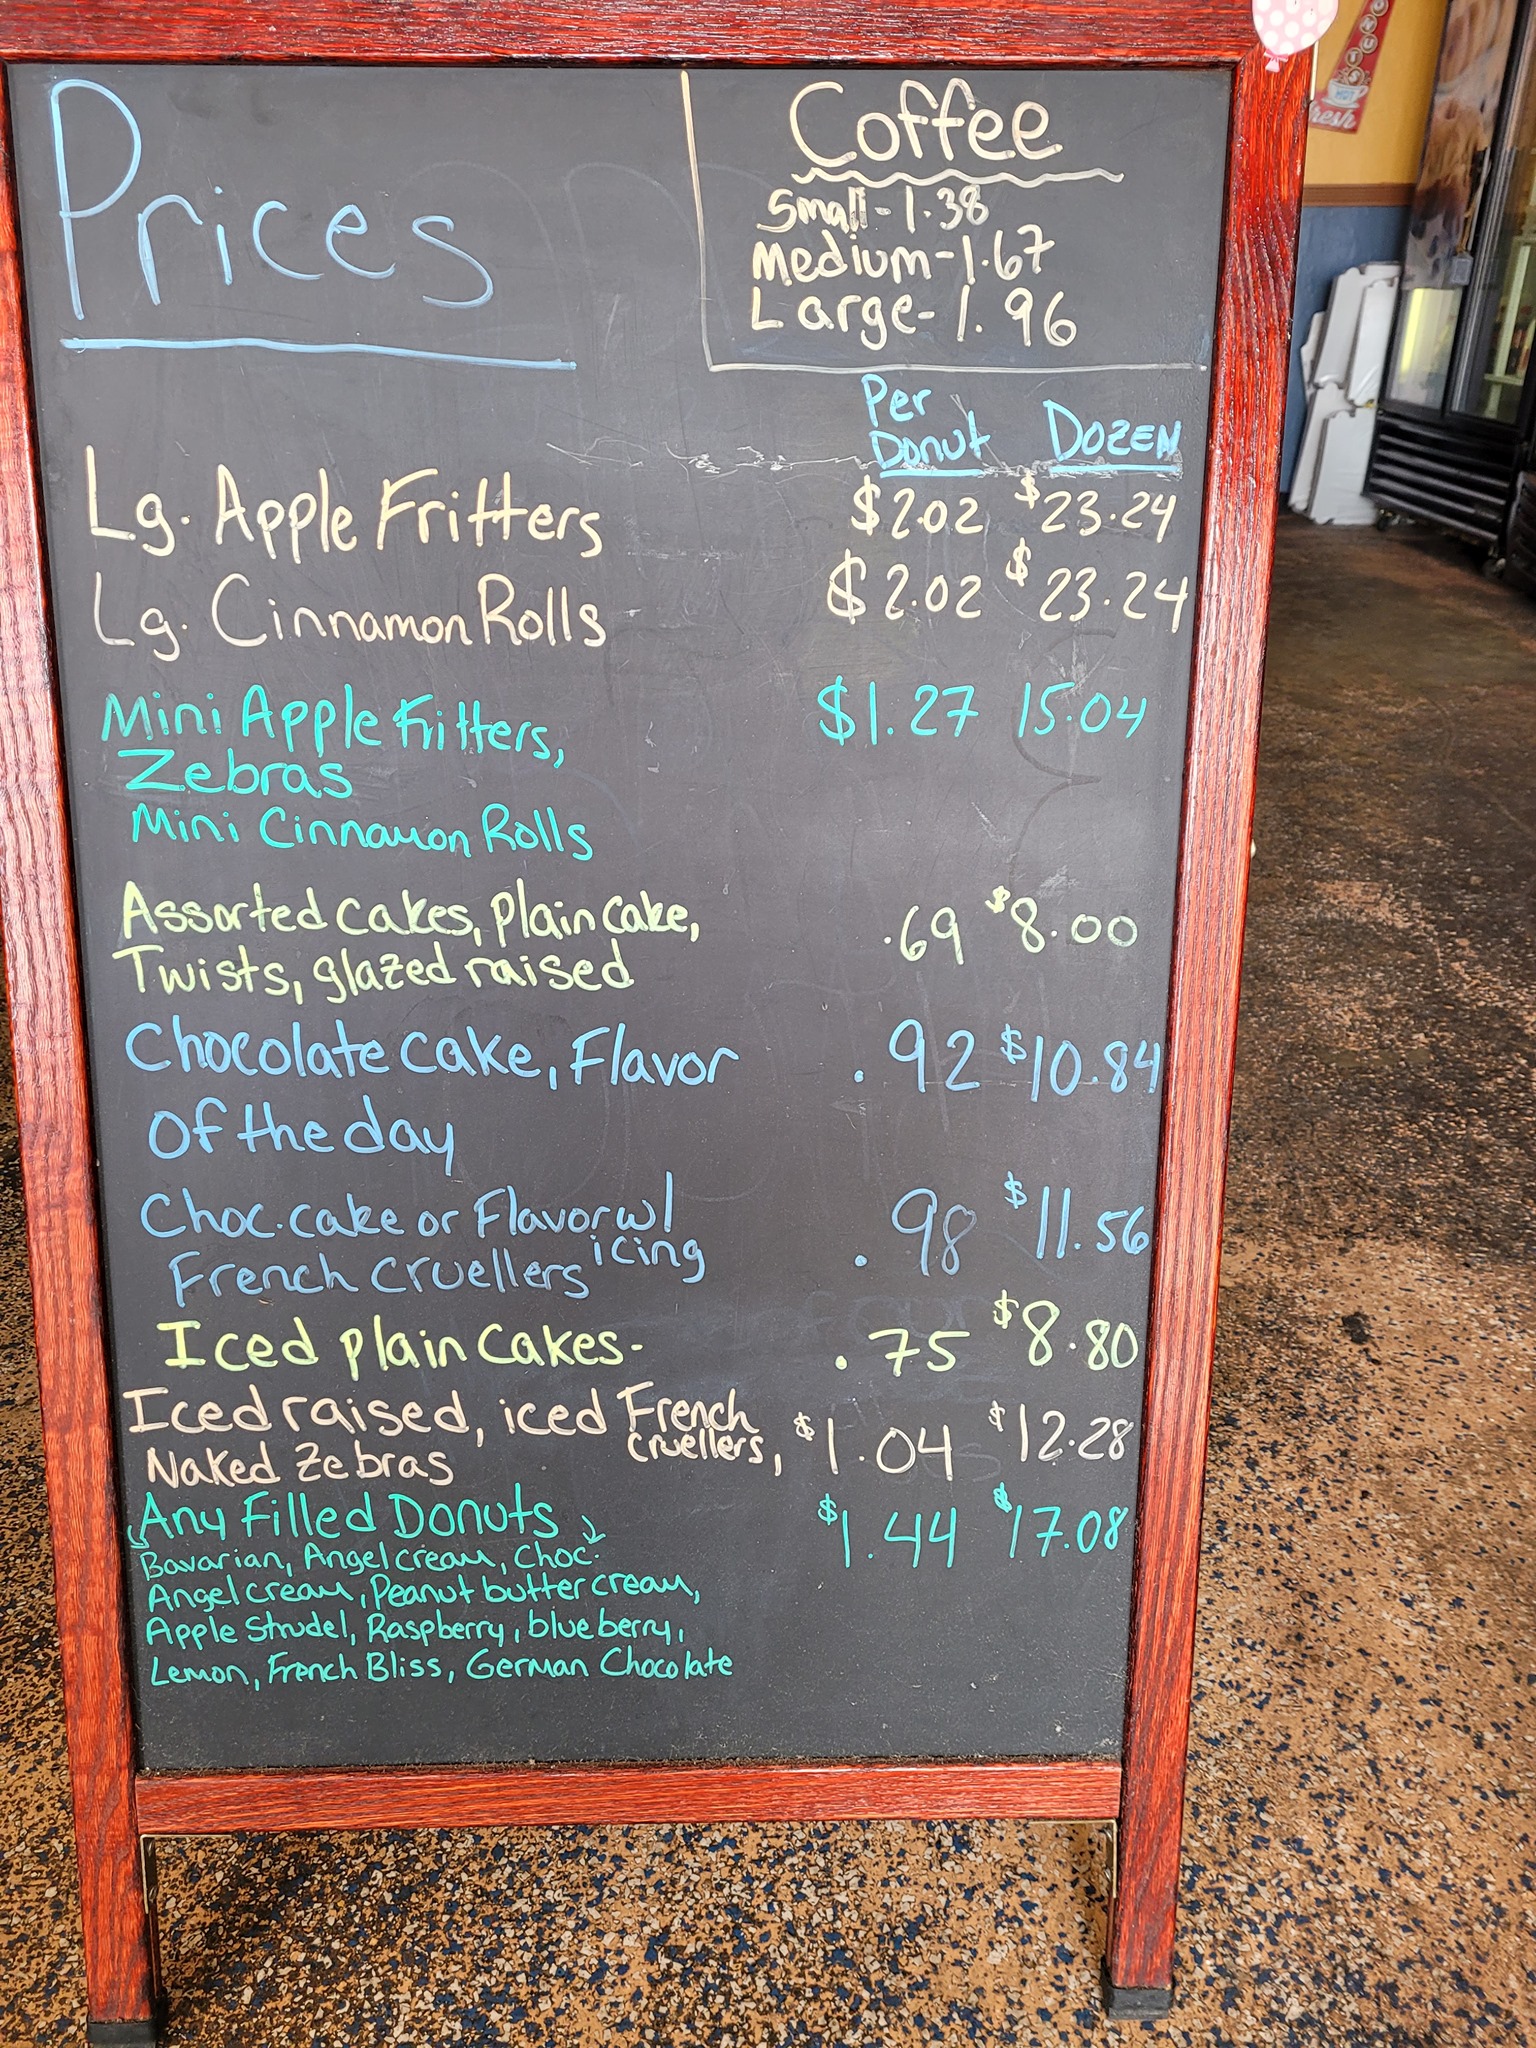 Prices
Coffee
Small-1.38
Medium-1.67
Large-1.96
Per
Donut DOZEN
Lg. Apple Fritters $2.02 $23.24
Lg. Cinnamon Rolls $2.02 $23.24
Mini Apple Fritters, $1.27 15.04
Zebras
Mini Cinnamon Rolls
Assorted cakes, plain cake, .69 $8.00
Twists, glazed raised
Chocolate cake, Flavor .92 $10.84
of the day
Choc. cake or Flavor w/ .98 $11.56
French cruellers icing
Iced plain cakes- .75 $8.80
Iced raised, iced French cruellers, $1.04 $12.28
Naked Zebras
Any Filled Donuts $1.44 $17.08
Bavarian, Angel cream, Choc.
Angel cream, Peanut butter cream,
Apple Strudel, Raspberry, blueberry,
Lemon, French Bliss, German Chocolate
HOT
fresh